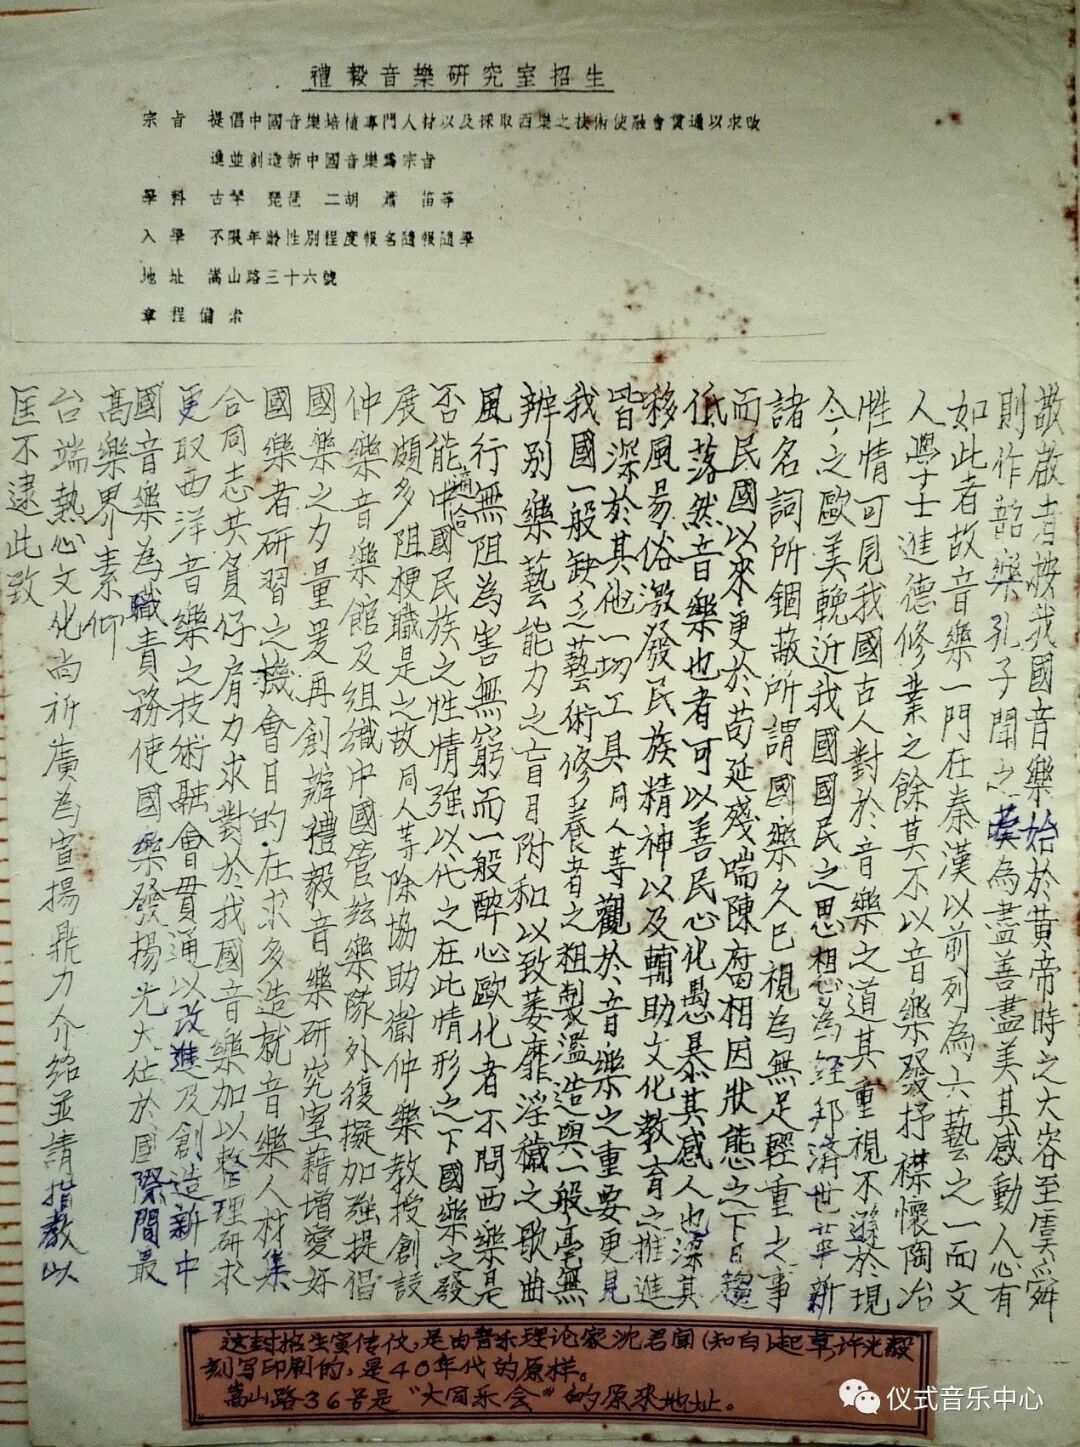 禮毅音樂研究室招生
宗旨 提倡中國音樂培植專門人材以及採取西樂之技術使融會貫通以求改
進並創造新中國音樂為宗旨
學科 古琴 琵琶 二胡 簫 笛等
入學 不限年齡性別程度報名隨報隨學
地址 嵩山路三十六號
章程備索
敬啟者按我國音樂始於黃帝時之大容至虞舜
則作韶樂孔子聞之嘆為盡善盡美其感動人心有
如此者故音樂一門在秦漢以前列為六藝之一而文
人學士進德修業之餘莫不以音樂發抒襟懷陶冶
性情可見我國古人對於音樂之道其重視不遜於現
今之歐美輓近我國國民之思想為經邦濟世革新
諸名詞所錮蔽所謂國樂久已視為無足輕重之事
而民國以來更於苟延殘喘陳腐相因狀態之下日趨
低落然音樂也者可以善民心化愚暴其感人也深其
移風易俗激發民族精神以及輔助文化教育之推進
皆深於其他一切工具同人等觀於音樂之重要更見
我國一般缺乏藝術修養者之粗製濫造與一般毫無
辨別樂藝能力之盲目附和以致萎靡淫穢之歌曲
風行無阻為害無窮而一般醉心歐化者不問西樂是
否能適合中國民族之性情強以代之在此情形之下國樂之發
展頗多阻梗職是之故同人等除協助衛仲樂教授創設
仲樂音樂館及組織中國管絃樂隊外復擬加強提倡
國樂之力量爰再創辦禮毅音樂研究室藉增愛好
國樂者研習之機會目的在求多造就音樂人材集
合同志共負仔肩力求對於我國音樂加以整理研求
更取西洋音樂之技術融會貫通以改進及創造新中
國音樂為職責務使國樂發揚光大位於國際間最
高樂界素仰
台端熱心文化尚祈廣為宣揚鼎力介紹並請指教以
匡不逮此致
这封招生宣传仗,是由音乐理论家沈君闻(知白)起草,许光毅
刻写印刷的,是40年代的原样。
嵩山路36号是“大同乐会”的原来地址。
仪式音乐中心